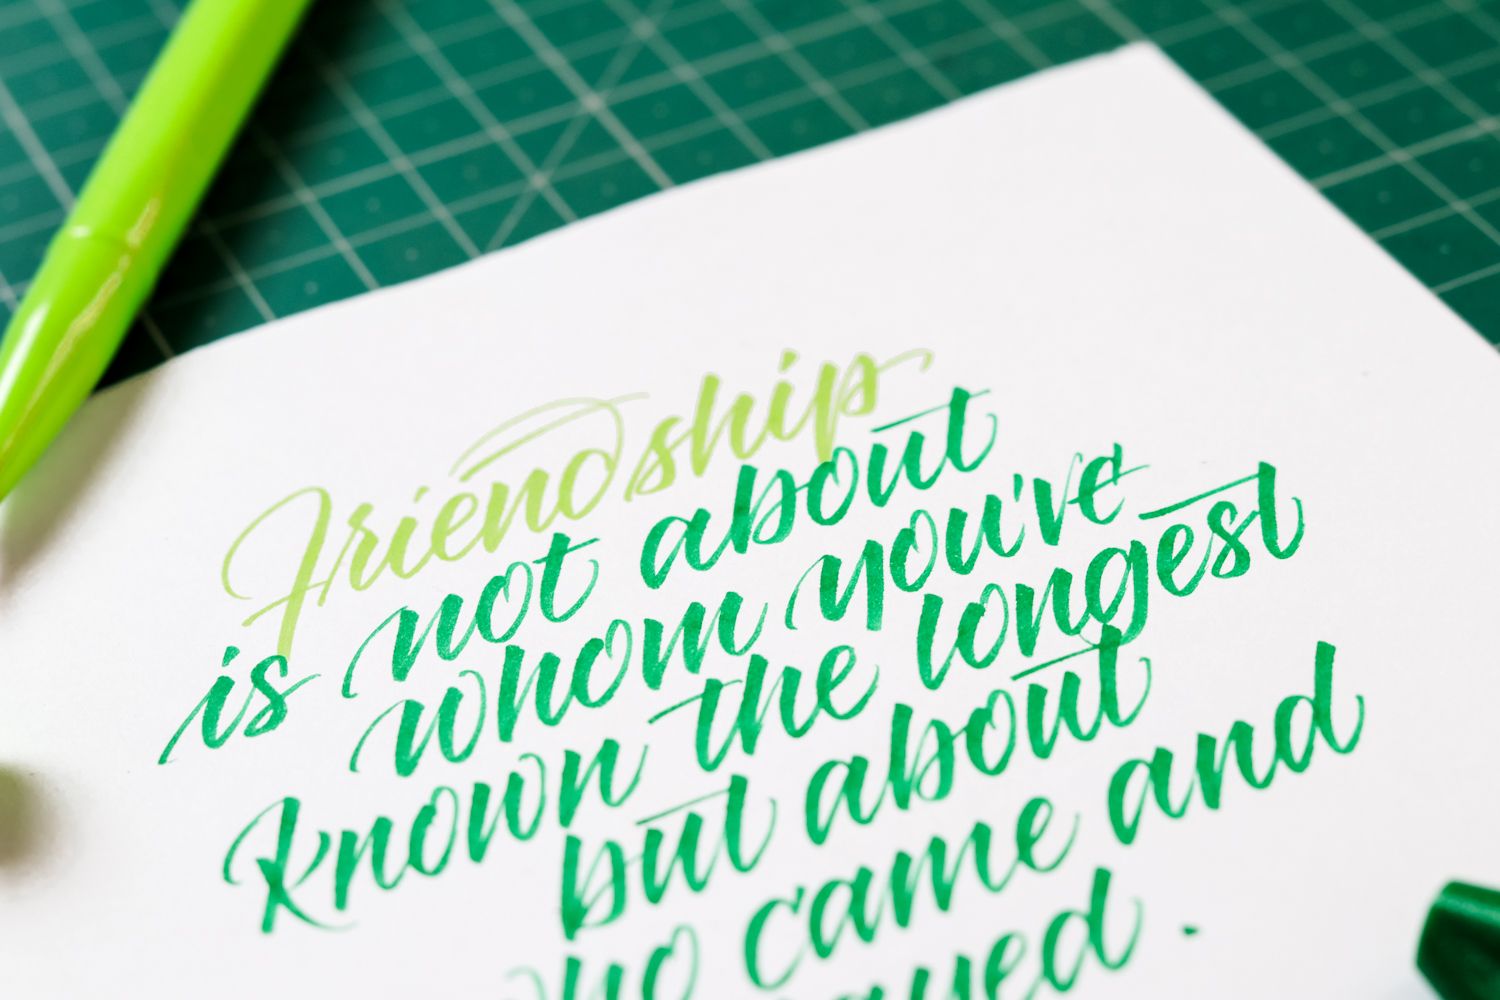 Friendship
is not about
whom you've
known the longest
but about
came and
.